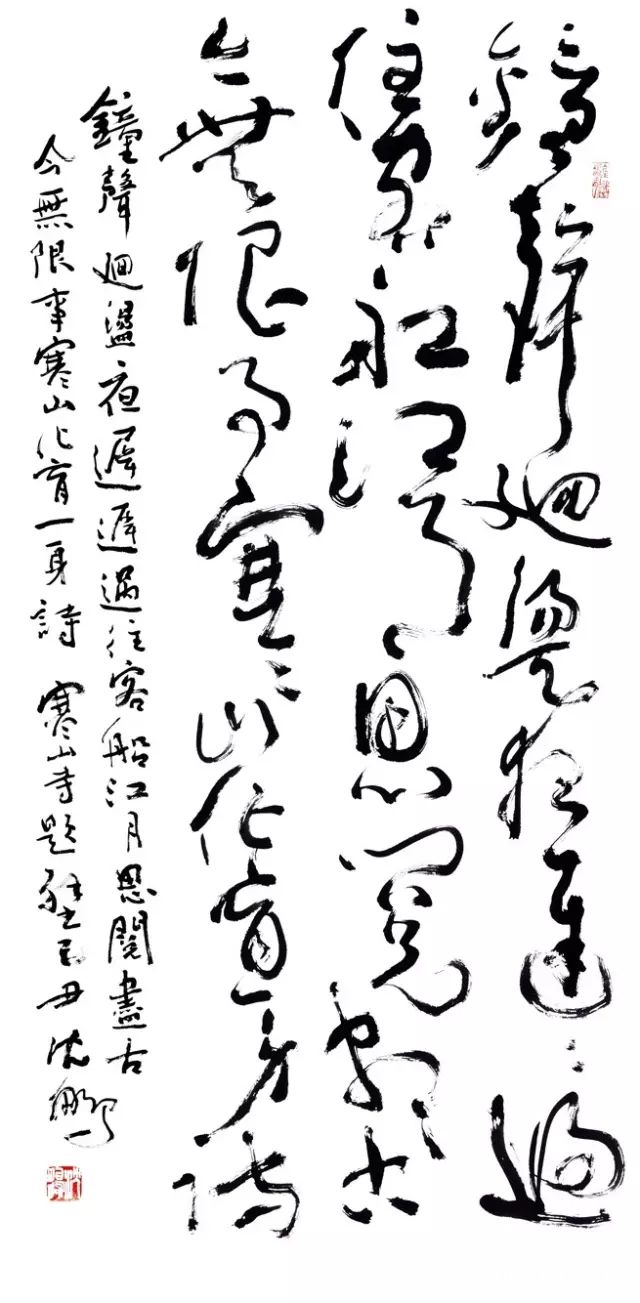 鐘聲廻盪夜遲〻過
往客船江月思閱盡古
今無限事寒山化育一身詩
鐘聲廻盪夜遲遲過往客船江月思閱盡古
今無限事寒山化育一身詩 寒山寺題壁 己丑 沈鵬